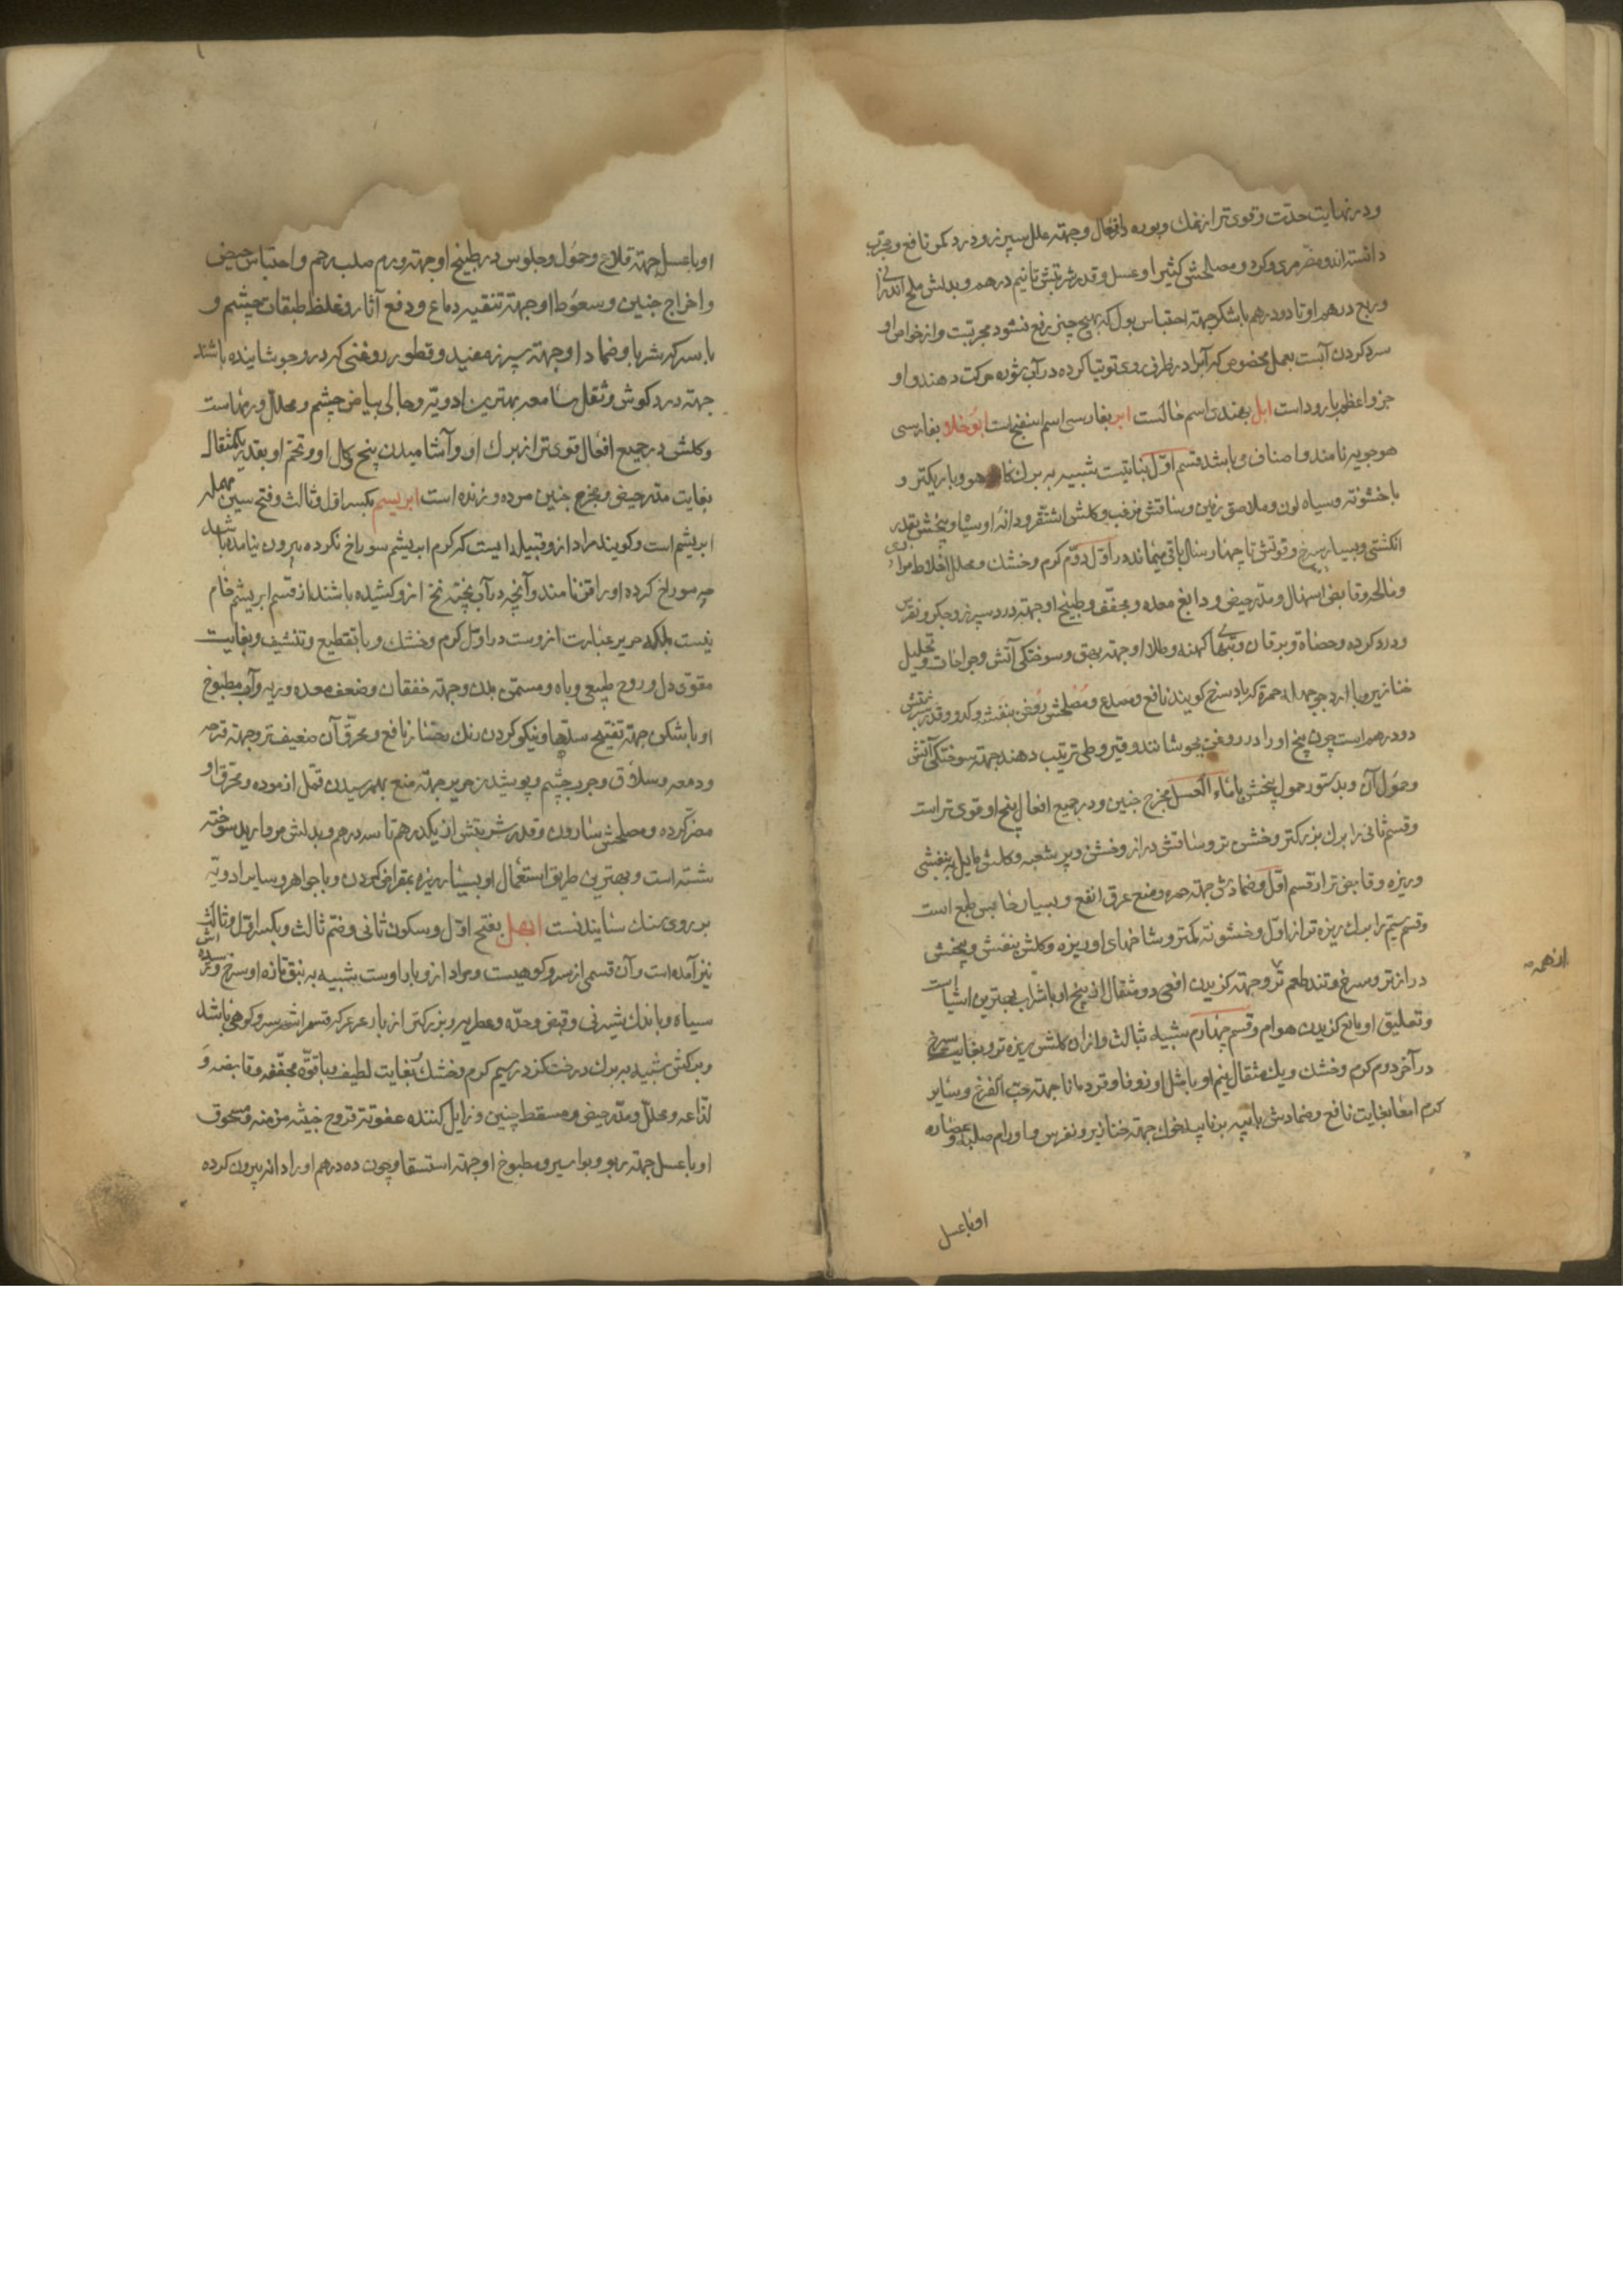 و در نهایت حدت و قوی تر از نمک و بوره و افعال و جهته علل سپرز و درد کمر نافع و مجرب
دانسته اند و مضر مری و کرده و مصلحش کثیرا و عسل و قدر شربتش تا نیم درهم و بدلش ملح اندرانی
و ربع درهم او تا دو درهم با شکر جهته احتباس بول که بهیچ چیز رفع نشود مجربست و از خواص او
سرد کردن آبست بعمل مخصوص که آبرا در ظرفی روی توتیا کرده در آب شوره حرکت دهند و او
جزو اعظم باروداست ابل بهندی اسم خالست ابر بفارسی اسم اسفنج است ابوخلا بفارسی
هوجویه نامند و اصناف و باشد قسم اول نباتیست شبیه به برک کاهو و باریکتر و
با خشونة و سیاه لون و ملاصق زمین و ساقش مزغب و کلش اشقر و دانه او سیاه و بیخش بقدر
انکشتی و بسیار سرخ و قوتش تا چهار سال باقی میماند در اول دوم کرم و خشک و محلل اخلاط مراری
و مالحه و قابض اسهال و مدر حیض و دابغ معده و مجفف و طبیخ او جهته درد سپرز و جکر و نقرس
و درد کرده و حصاة و یرقان و تبهای کهنه و طلا او جهته بهق و سوختکی آتش و جراحات و تحلیل
خنازیر و با ارد جو جهة حمره که باد سرخ کویند نافع و مصدع و مصلحش روغن بنفشه و کدو و قدر شربتش
دو درهم است چون بیخ او را در روغن بجوشانند و قیروطی ترتیب دهند جهته سوختکی آتش
و حمول آن و بدستور حمول بیخش با ماء العسل مخرج جنین و در جمیع افعال بیخ او قوی تر است
و قسم ثانی را برک بزرکتر و خشن تر و ساقش دراز و خشن و پر شعبه و کلش مایل به بنفشی
و ریزه و قابض تر از قسم اول و ضمادش جهته حمره و منع عرق انفع و بسیار حابس طبع است
و قسم سیم را برک ریزه تر از اول و خشونه کمتر و شاخهای او ریزه و کلش بنفش و بیخش
دراز تر و سرخ و تند طعم تر و جهته کزیدن افعی دو مثقال از بیخ او با شراب بهترین اشیا است
و تعلیق او مانع کزیدن هوام و قسم چهارم شبیه بثالث و از ان کلش ریزه تر و بغایت سرخ
در آخر دوم کرم و خشک و یک مثقال و نیم او با مثل او زوفا و قردمانا جهته حب القرع و سایر
کرم امعا بغایت نافع و ضمادش با پیه بز یا پیه خوک جهته خنازیر و نقرس و اورام صلبه و عصاره
او با عسل
او با عسل جهته قلاع و حمول و جلوس در طبیخ او جهته ورم صلب رحم و احتباس حیض
و اخراج جنین و سعوط او جهته تنقیه دماغ و دفع آثار و غلظ طبقات چشم و
با سرکه شربا و ضمادا و جهته سپرز مفید و قطور روغنی که در و جوشاینده باشند
جهته درد کوش و ثقل سامعه بهترین ادویه و جالی بیاض چشم و محلل ورمهاست
و کلش در جمیع افعال قوی تر از برک او و آشامیدن بیخ و کل او و تخم او بقدر یکمثقال
بغایت مدر حیض و مخرج جنین مرده و زنده است ابریسم بکسر اول و ثالث و فتح سین مهمله
ابریشم است و کویند مراد از و قبیله ایست که کرم ابریشم سوراخ نکرده بیرون نیامده باشد
چه سوراخ کرده او را قز نامند و آنچه در آب پخته نخ ازو کشیده باشند از قسم ابریشم خام
نیست بلکه حریر عبارت ازوست در اول کرم و خشک و با تقطیع و تنشیف و بغایت
مقوی دل و روح طبیعی و باه و مسمن بدن و جهته خفقان و ضعف معده و ریه و آب مطبوخ
او با شکر جهته تفتیح سدها و نیکو کردن رنک رخسار نافع و محرق آن ضعیف تر و جهته قرحه
و دمعه و سلاق و جرب چشم و پوشیدن حریر جهته منع بهم رسیدن قمل ازموده و محرق او
مضر کرده و مصلحش سارون و قدر شربتش از یکدرهم تا سه درهم و بدلش مروارید سوخته
شسته است و بهترین طریق استعمال او بسیار ریزه بمقراض کردن و با جواهر و سایر ادویه
بر روی سنک سائیدنست ابهل بفتح اول و سکون ثانی و ضم ثالث و بکسر اول و ثالث
نیز آمده است و آن قسمی از سرو کوهیست و مراد ازو بار اوست شبیه به نبق تازه او سرخ و رسیده اش
سیاه و با اندک شیرنی و قبض و حده و عطریه و بزرکتر از بار عرعر که قسم اشهر سرو کوهی باشد
و برکش شبیه به برک درخت کز در سیم کرم و خشک بغایت لطیف و با قوه مجففه و قابضه و
لذاعه و محلل و مدر حیض و مسقط جنین و زایل کننده عفونة قروح خبیثه مزمنه و مسحوق
او با عسل جهته ربو و بواسیر و مطبوخ او جهته استسقا و چون ده درهم او را دانه بیرون کرده